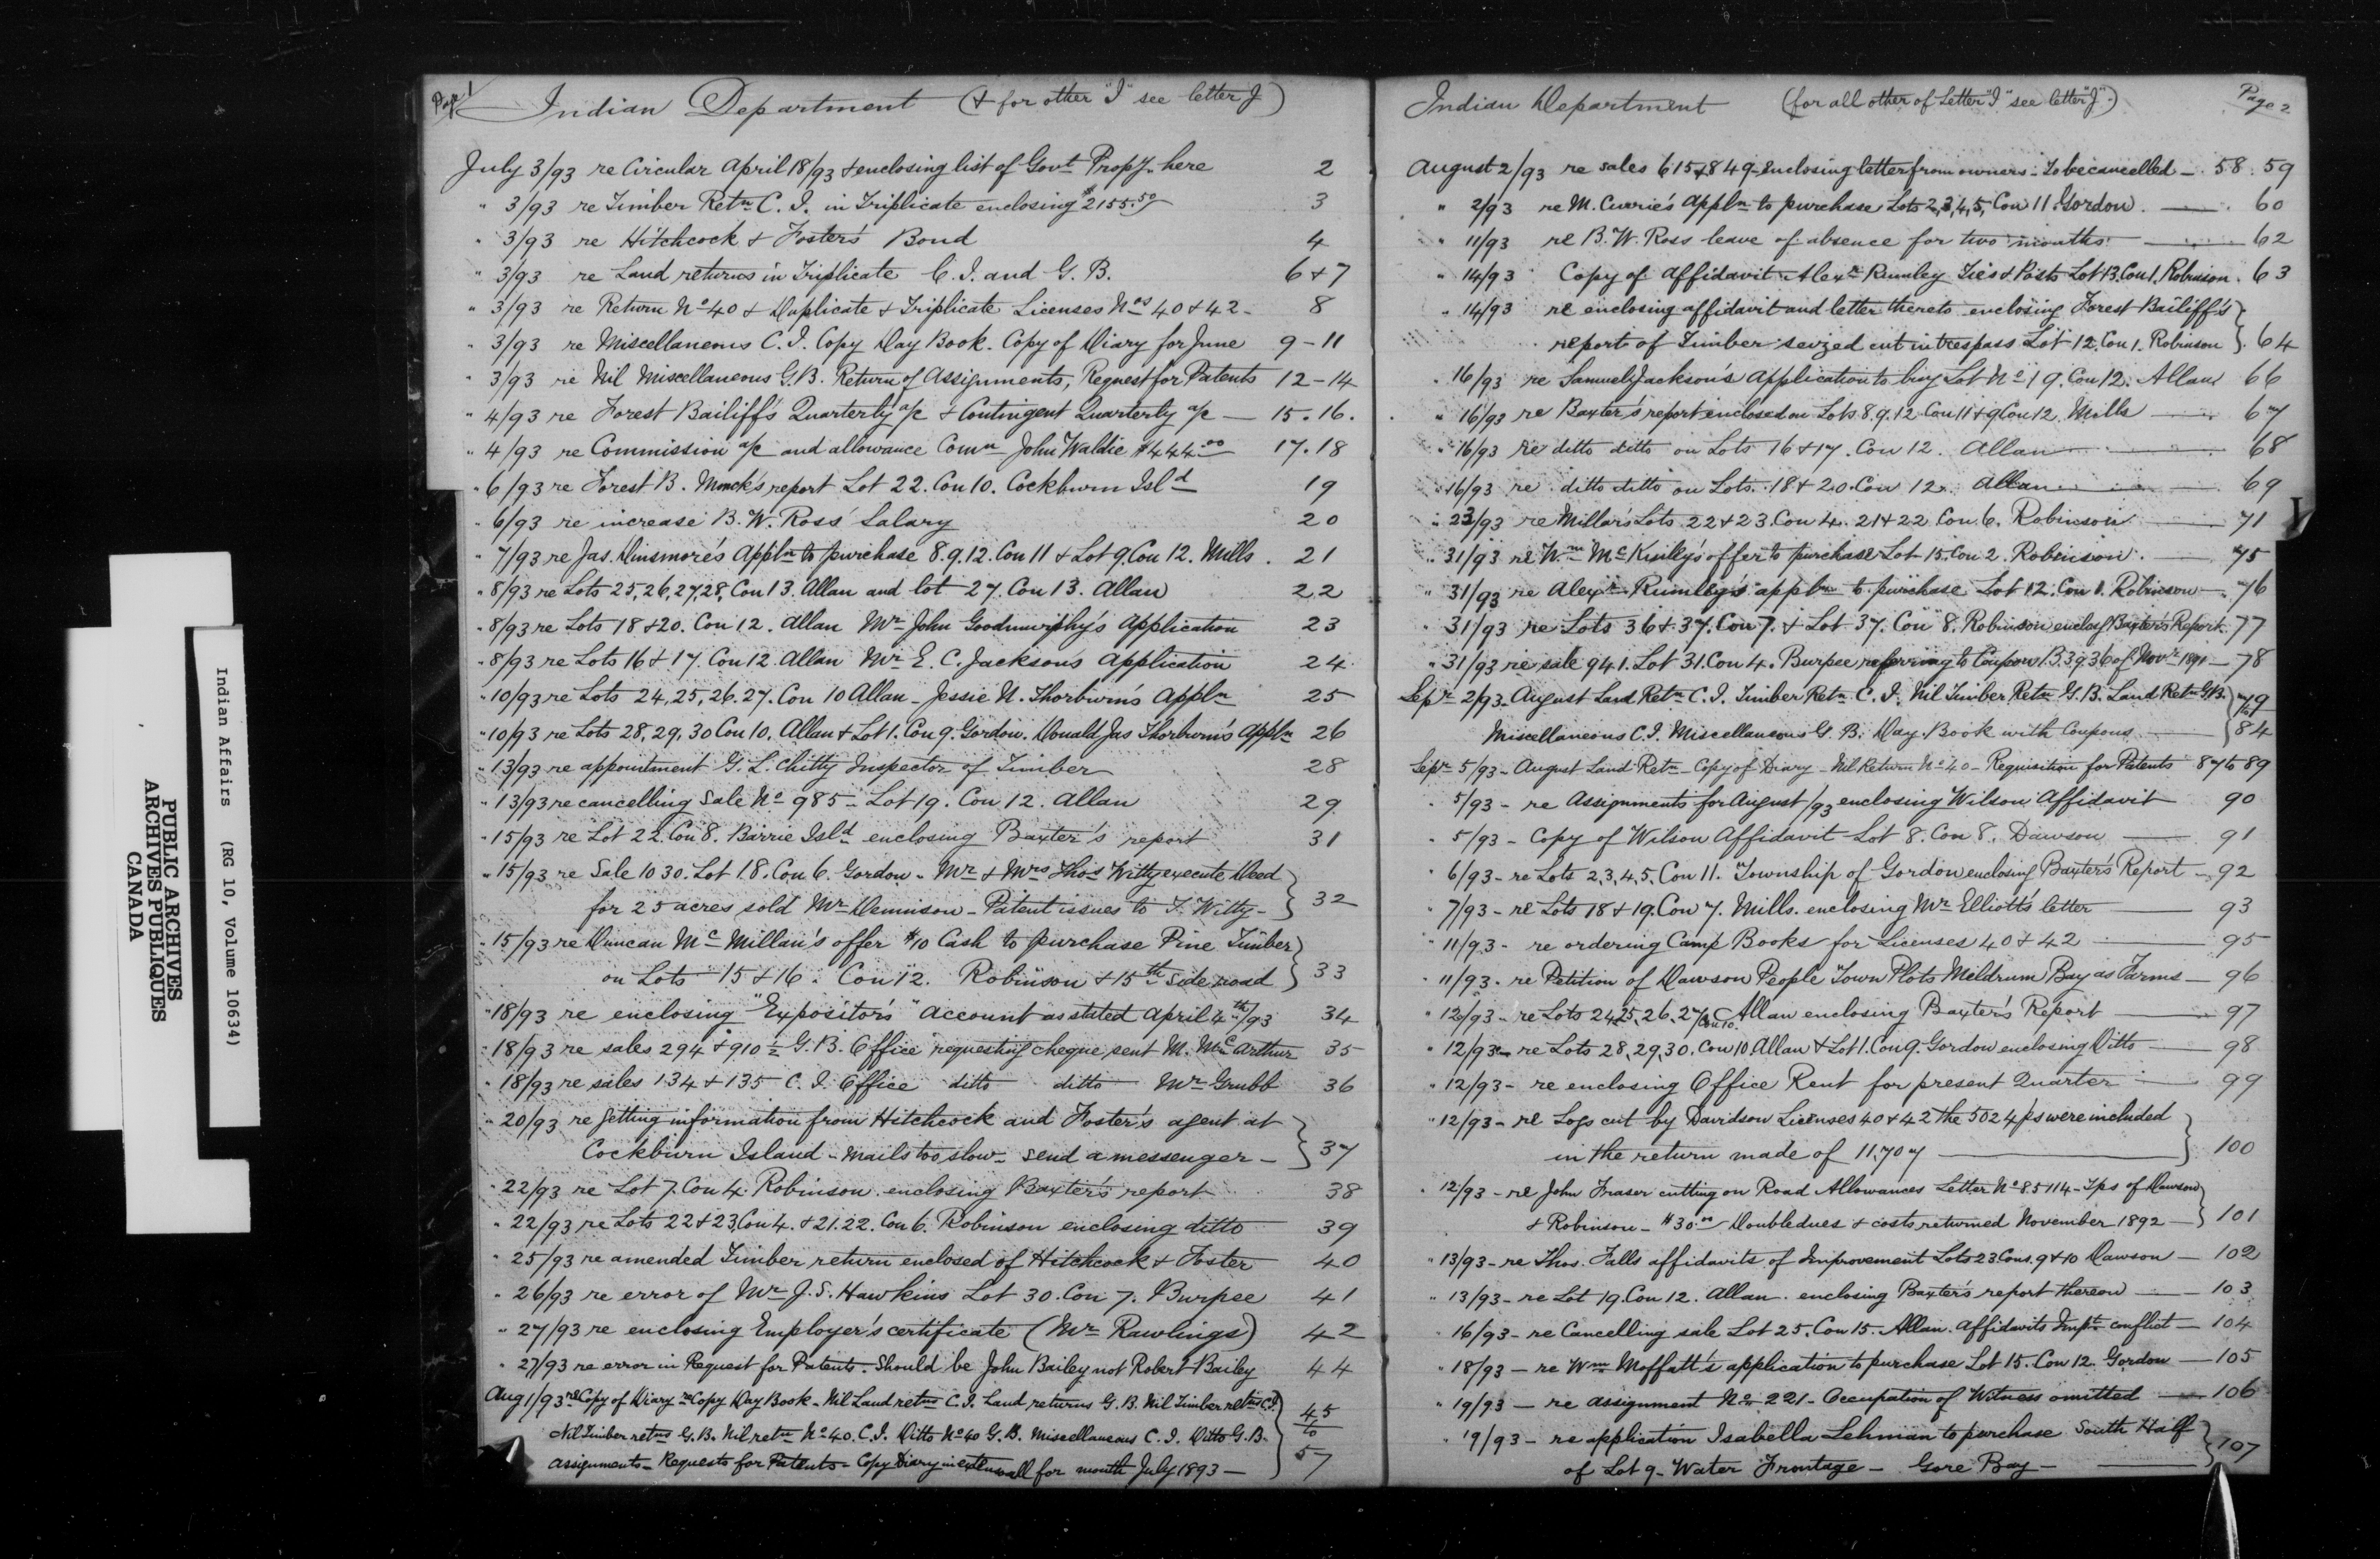 Page 1
Indian Department (& for other "I" see letter J)
July 3/93 re Circular April 18/93 & enclosing list of Govt Propy. here 2
" 3/93 re Timber Retn C. I. in Triplicate enclosing $2155.50 3
" 3/93 re Hitchcock & Foster's Bond 4
" 3/93 re Land returns in Triplicate C. I. and G. B. 6 & 7
" 3/93 re Return No 40 & Duplicate & Triplicate Licenses Nos 40 & 42 - 8
" 3/93 re Miscellaneous C. I. Copy Day Book. Copy of Diary for June 9 - 11
" 3/93 re Nil Miscellaneous G.B. Return of Assignments, Request for Patents 12 - 14
" 4/93 re Forest Bailiff's Quarterly a/c & Contingent Quarterly a/c — 15. 16.
" 4/93 re Commission a/c and allowance Comn John Waldie $444.00 17. 18
" 6/93 re Forest B. Monck's report Lot 22. Con 10. Cockburn Isld 19
" 6/93 re increase B. W. Ross' Salary 20
" 7/93 re Jas. Dinsmore's Appln to purchase 8. 9. 12. Con 11 & Lot 9. Con 12. Mills. 21
" 8/93 re Lots 25, 26, 27, 28, Con 13. Allan and lot 27. Con 13. Allan 22
" 8/93 re Lots 18 & 20. Con 12. Allan Mr John Goodmurphy's Application 23
" 8/93 re Lots 16 & 17. Con 12. Allan Mr E. C. Jackson's Application 24
" 10/93 re Lots 24, 25, 26. 27. Con 10 Allan - Jessie N. Thorburn's Appln 25
" 10/93 re Lots 28, 29, 30 Con 10. Allan & Lot 1. Con 9. Gordon. Donald Jas Thorburn's Appln 26
" 13/93 re appointment G. L. Chitty Inspector of Timber 28
" 13/93 re cancelling Sale No 985 - Lot 19. Con 12. Allan 29
" 15/93 re Lot 22. Con 8. Barrie Isld enclosing Baxter's report 31
" 15/93 re Sale 1030. Lot 18. Con 6. Gordon - Mr & Mrs Thos Witty execute Deed
for 25 acres sold Mr Dennison - Patent issues to T. Witty - 32
" 15/93 re Duncan McMillan's offer $10 Cash to purchase Pine Timber
on Lots 15 & 16. Con 12. Robinson & 15th Side road 33
" 18/93 re enclosing "Expositor's" Account as stated April 4th/93 34
" 18/93 re sales 294 & 910½ G. B. Office requesting cheque sent M. McArthur 35
" 18/93 re sales 134 & 135 C. I. Office ditto ditto Mr Grubb 36
" 20/93 re getting information from Hitchcock and Foster's agent at
Cockburn Island - mails too slow - send a messenger - 37
" 22/93 re Lot 7. Con 4. Robinson enclosing Baxter's report 38
" 22/93 re Lots 22 & 23. Con 4. & 21. 22. Con 6. Robinson enclosing ditto 39
" 25/93 re amended Timber return enclosed of Hitchcock & Foster 40
" 26/93 re error of Mr J. S. Hawkins Lot 30. Con 7. Burpee 41
" 27/93 re enclosing Employer's certificate (Mr Rawlings) 42
" 27/93 re error in Request for Patents. Should be John Bailey not Robert Bailey 44
Aug 1/93 re Copy of Diary re Copy Day Book - Nil Land retns C. I. Land returns G. B. Nil Timber retns C.I.
Nil Timber retns G. B. Nil retn No 40. C. I. Ditto No 40 G. B. Miscellaneous C. I. Ditto G. B. 45 to
Assignments - Requests for Patents - Copy Diary in extenso all for month July 1893 - 57
Indian Department (for all other of Letter "I" see letter "J".) Page 2
August 2/93 re sales 615 & 849 - enclosing letter from owners - To be cancelled - 58. 59
" 2/93 re M. Currie's Appln to purchase Lots 2, 3, 4, 5, Con 11 Gordon. — 60
" 11/93 re B. W. Ross leave of absence for two months. — 62
" 14/93 Copy of Affidavit Alexr Rumley Ties & Posts Lot 13. Con 1. Robinson. 63
" 14/93 re enclosing affidavit and letter thereto enclosing Forest Bailiff's
report of Timber seized cut in trespass Lot 12. Con 1. Robinson. 64
" 16/93 re Samuel Jackson's Application to buy Lot No 19. Con 12. Allan 66
" 16/93 re Baxter's report enclosed on Lots 8. 9. 12. Con 11 & 9 Con 12. Mills — 67
" 16/93 re ditto ditto on Lots 16 & 17. Con 12. Allan — 68
" 16/93 re ditto ditto on Lots. 18 & 20. Con 12. Allan — 69
" 23/93 re Millar's Lots 22 & 23. Con 4. 21 & 22 Con 6. Robinson — 71
" 31/93 re Wm McKinly's offer to purchase Lot 15. Con 2. Robinson. — 75
" 31/93 re Alexr Rumley's appln to purchase Lot 12. Con 1. Robinson — 76
" 31/93 re Lots 36 & 37. Con 7. & Lot 37. Con 8. Robinson enclosg Baxter's Report. 77
" 31/93 re sale 941. Lot 31. Con 4. Burpee referring to Coupon B. 3936 of Novr 1891 — 78
Sepr 2/93 - August Land Retn C. I. Timber Retn C. I. Nil Timber Retn G. B. Land Retn G.B. 79 to
Miscellaneous C. I. Miscellaneous G. B. Day Book with Coupons — 84
Sepr 5/93 - August Land Retn - Copy of Diary - Nil Return No 40 - Requisition for Patents 87 to 89
" 5/93 - re Assignments for August /93 enclosing Wilson Affidavit 90
" 5/93 - Copy of Wilson Affidavit Lot 8. Con 8. Dawson — 91
" 6/93 - re Lots 2, 3, 4, 5, Con 11. Township of Gordon enclosing Baxter's Report - 92
" 7/93 - re Lots 18 & 19. Con 7. Mills. enclosing Mr Elliott's letter — 93
" 11/93 - re ordering Camp Books for Licenses 40 & 42 — 95
" 11/93 - re Petition of Dawson People Town Plots Meldrum Bay as Farms — 96
" 12/93 - re Lots 24, 25, 26, 27 Con 10. Allan enclosing Baxter's Report — 97
" 12/93 - re Lots 28, 29, 30. Con 10 Allan & Lot 1. Con 9. Gordon enclosing Ditto — 98
" 12/93 - re enclosing Office Rent for present Quarter — 99
" 12/93 - re Logs cut by Davidson Licenses 40 & 42 the 5024 ps were included
in the return made of 11,707 — 100
" 12/93 - re John Fraser cutting on Road Allowances Letter No 85114 - Tps of Dawson
& Robinson - $30.00 Double dues & costs returned November 1892 — 101
" 13/93 - re Thos. Falls affidavits of Improvement Lots 23. Cons. 9 & 10 Dawson — 102
" 13/93 - re Lot 19. Con 12. Allan. enclosing Baxter's report thereon — 103
" 16/93 - re Cancelling sale Lot 25. Con 15. Allan. Affidavits Impt conflict — 104
" 18/93 — re Wm Moffatt's application to purchase Lot 15. Con 12. Gordon — 105
" 19/93 — re assignment No 221 - Occupation of Witness omitted — 106
" 19/93 - re application Isabella Lehman to purchase South Half
of Lot 9 - Water Frontage - Gore Bay - — 107
Indian Affairs (RG 10, Volume 10634)
PUBLIC ARCHIVES
ARCHIVES PUBLIQUES
CANADA